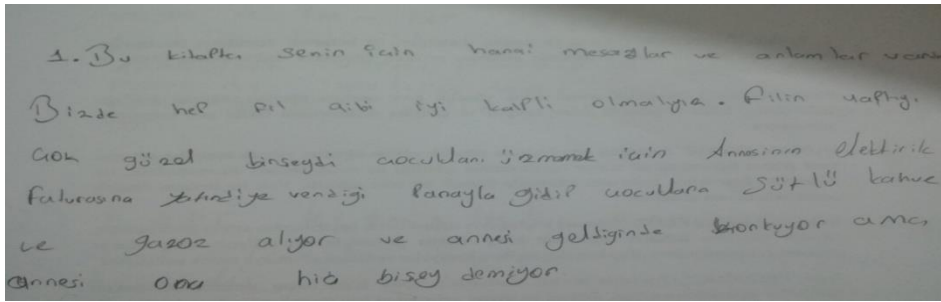 1. Bu kitapta senin için hangi mesajlar ve anlamlar vardı
Bizde hep fil gibi iyi kalpli olmalıyız. Filin yaptığı
çok güzel birşeydi çocukları üzmemek için Annesinin elektirik
faturasına verdiği parayla gidip çocuklara sütlü kahve
ve gazoz alıyor ve annesi geldiğinde korkuyor ama
annesi ona hiç bişey demiyor